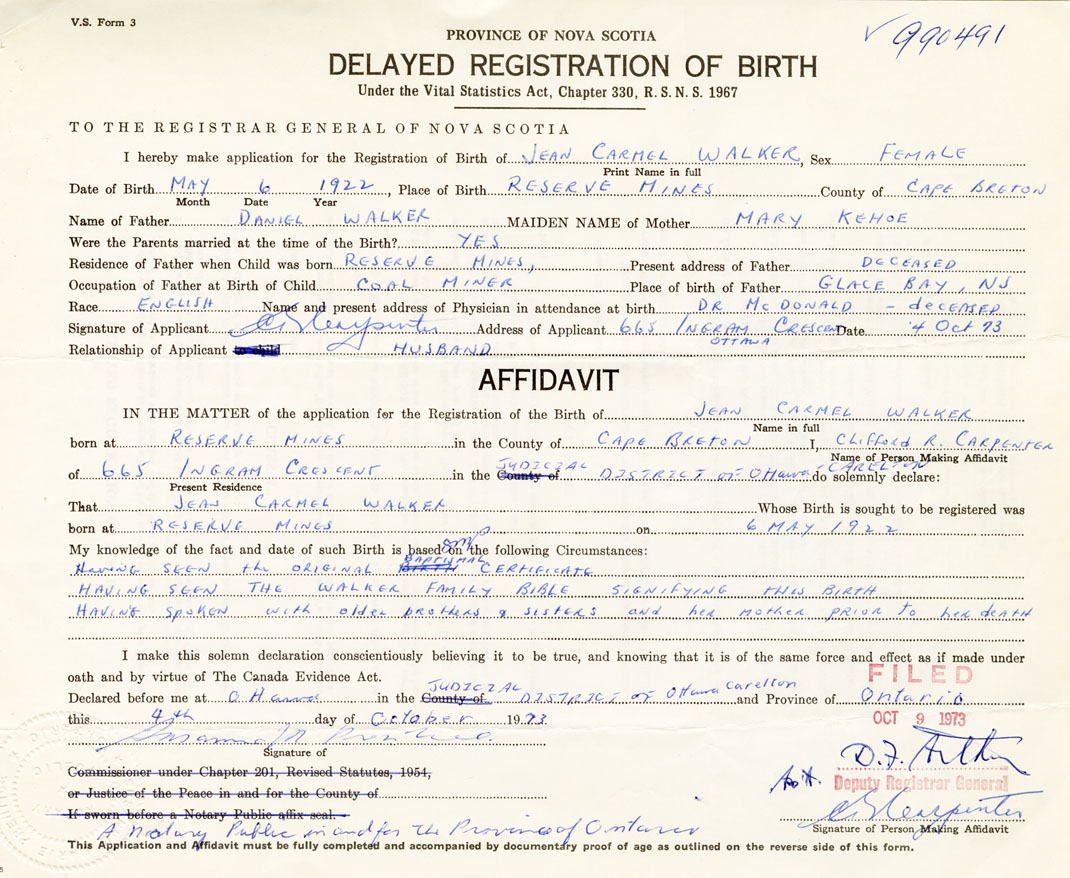 V.S. Form 3
PROVINCE OF NOVA SCOTIA
√ 990491
DELAYED REGISTRATION OF BIRTH
Under the Vital Statistics Act, Chapter 330, R.S.N.S. 1967
TO THE REGISTRAR GENERAL OF NOVA SCOTIA
I hereby make application for the Registration of Birth of JEAN CARMEL WALKER, Sex FEMALE
Print Name in full
Date of Birth MAY 6 1922, Place of Birth RESERVE MINES County of CAPE BRETON
Month Date Year
Name of Father DANIEL WALKER MAIDEN NAME of Mother MARY KEHOE
Were the Parents married at the time of the Birth? YES
Residence of Father when Child was born RESERVE MINES, Present address of Father DECEASED
Occupation of Father at Birth of Child COAL MINER Place of birth of Father GLACE BAY, NS
Race ENGLISH Name and present address of Physician in attendance at birth DR McDONALD - deceased
Signature of Applicant Carpenter Address of Applicant 665 INGRAM CRESCENT Date 4 Oct 73
OTTAWA
Relationship of Applicant to child HUSBAND
AFFIDAVIT
IN THE MATTER of the application for the Registration of the Birth of JEAN CARMEL WALKER
Name in full
born at RESERVE MINES in the County of CAPE BRETON I, Clifford R. CARPENTER
Name of Person Making Affidavit
JUDICIAL CARELTON
of 665 INGRAM CRESCENT in the County of DISTRICT OF Ottawa do solemnly declare:
Present Residence
That JEAN CARMEL WALKER Whose Birth is sought to be registered was
born at RESERVE MINES on 6 MAY 1922
My knowledge of the fact and date of such Birth is based on the following Circumstances:
BAPTISMAL
HAVING SEEN the ORIGINAL BIRTH CERTIFICATE
HAVING SEEN THE WALKER FAMILY BIBLE SIGNIFYING THIS BIRTH
HAVING SPOKEN with older brothers & sisters and her mother PRIOR to her death
I make this solemn declaration conscientiously believing it to be true, and knowing that it is of the same force and effect as if made under
oath and by virtue of The Canada Evidence Act.
FILED
JUDICIAL
Declared before me at Ottawa in the County of DISTRICT OF Ottawa Carelton and Province of Ontario
this 4th day of October 1973
OCT 9 1973
Signature of
Commissioner under Chapter 201, Revised Statutes, 1954,
or Justice of the Peace in and for the County of
Deputy Registrar General
If sworn before a Notary Public affix seal.
Carpenter
A Notary Public in and for the Province of Ontario
Signature of Person Making Affidavit
This Application and Affidavit must be fully completed and accompanied by documentary proof of age as outlined on the reverse side of this form.